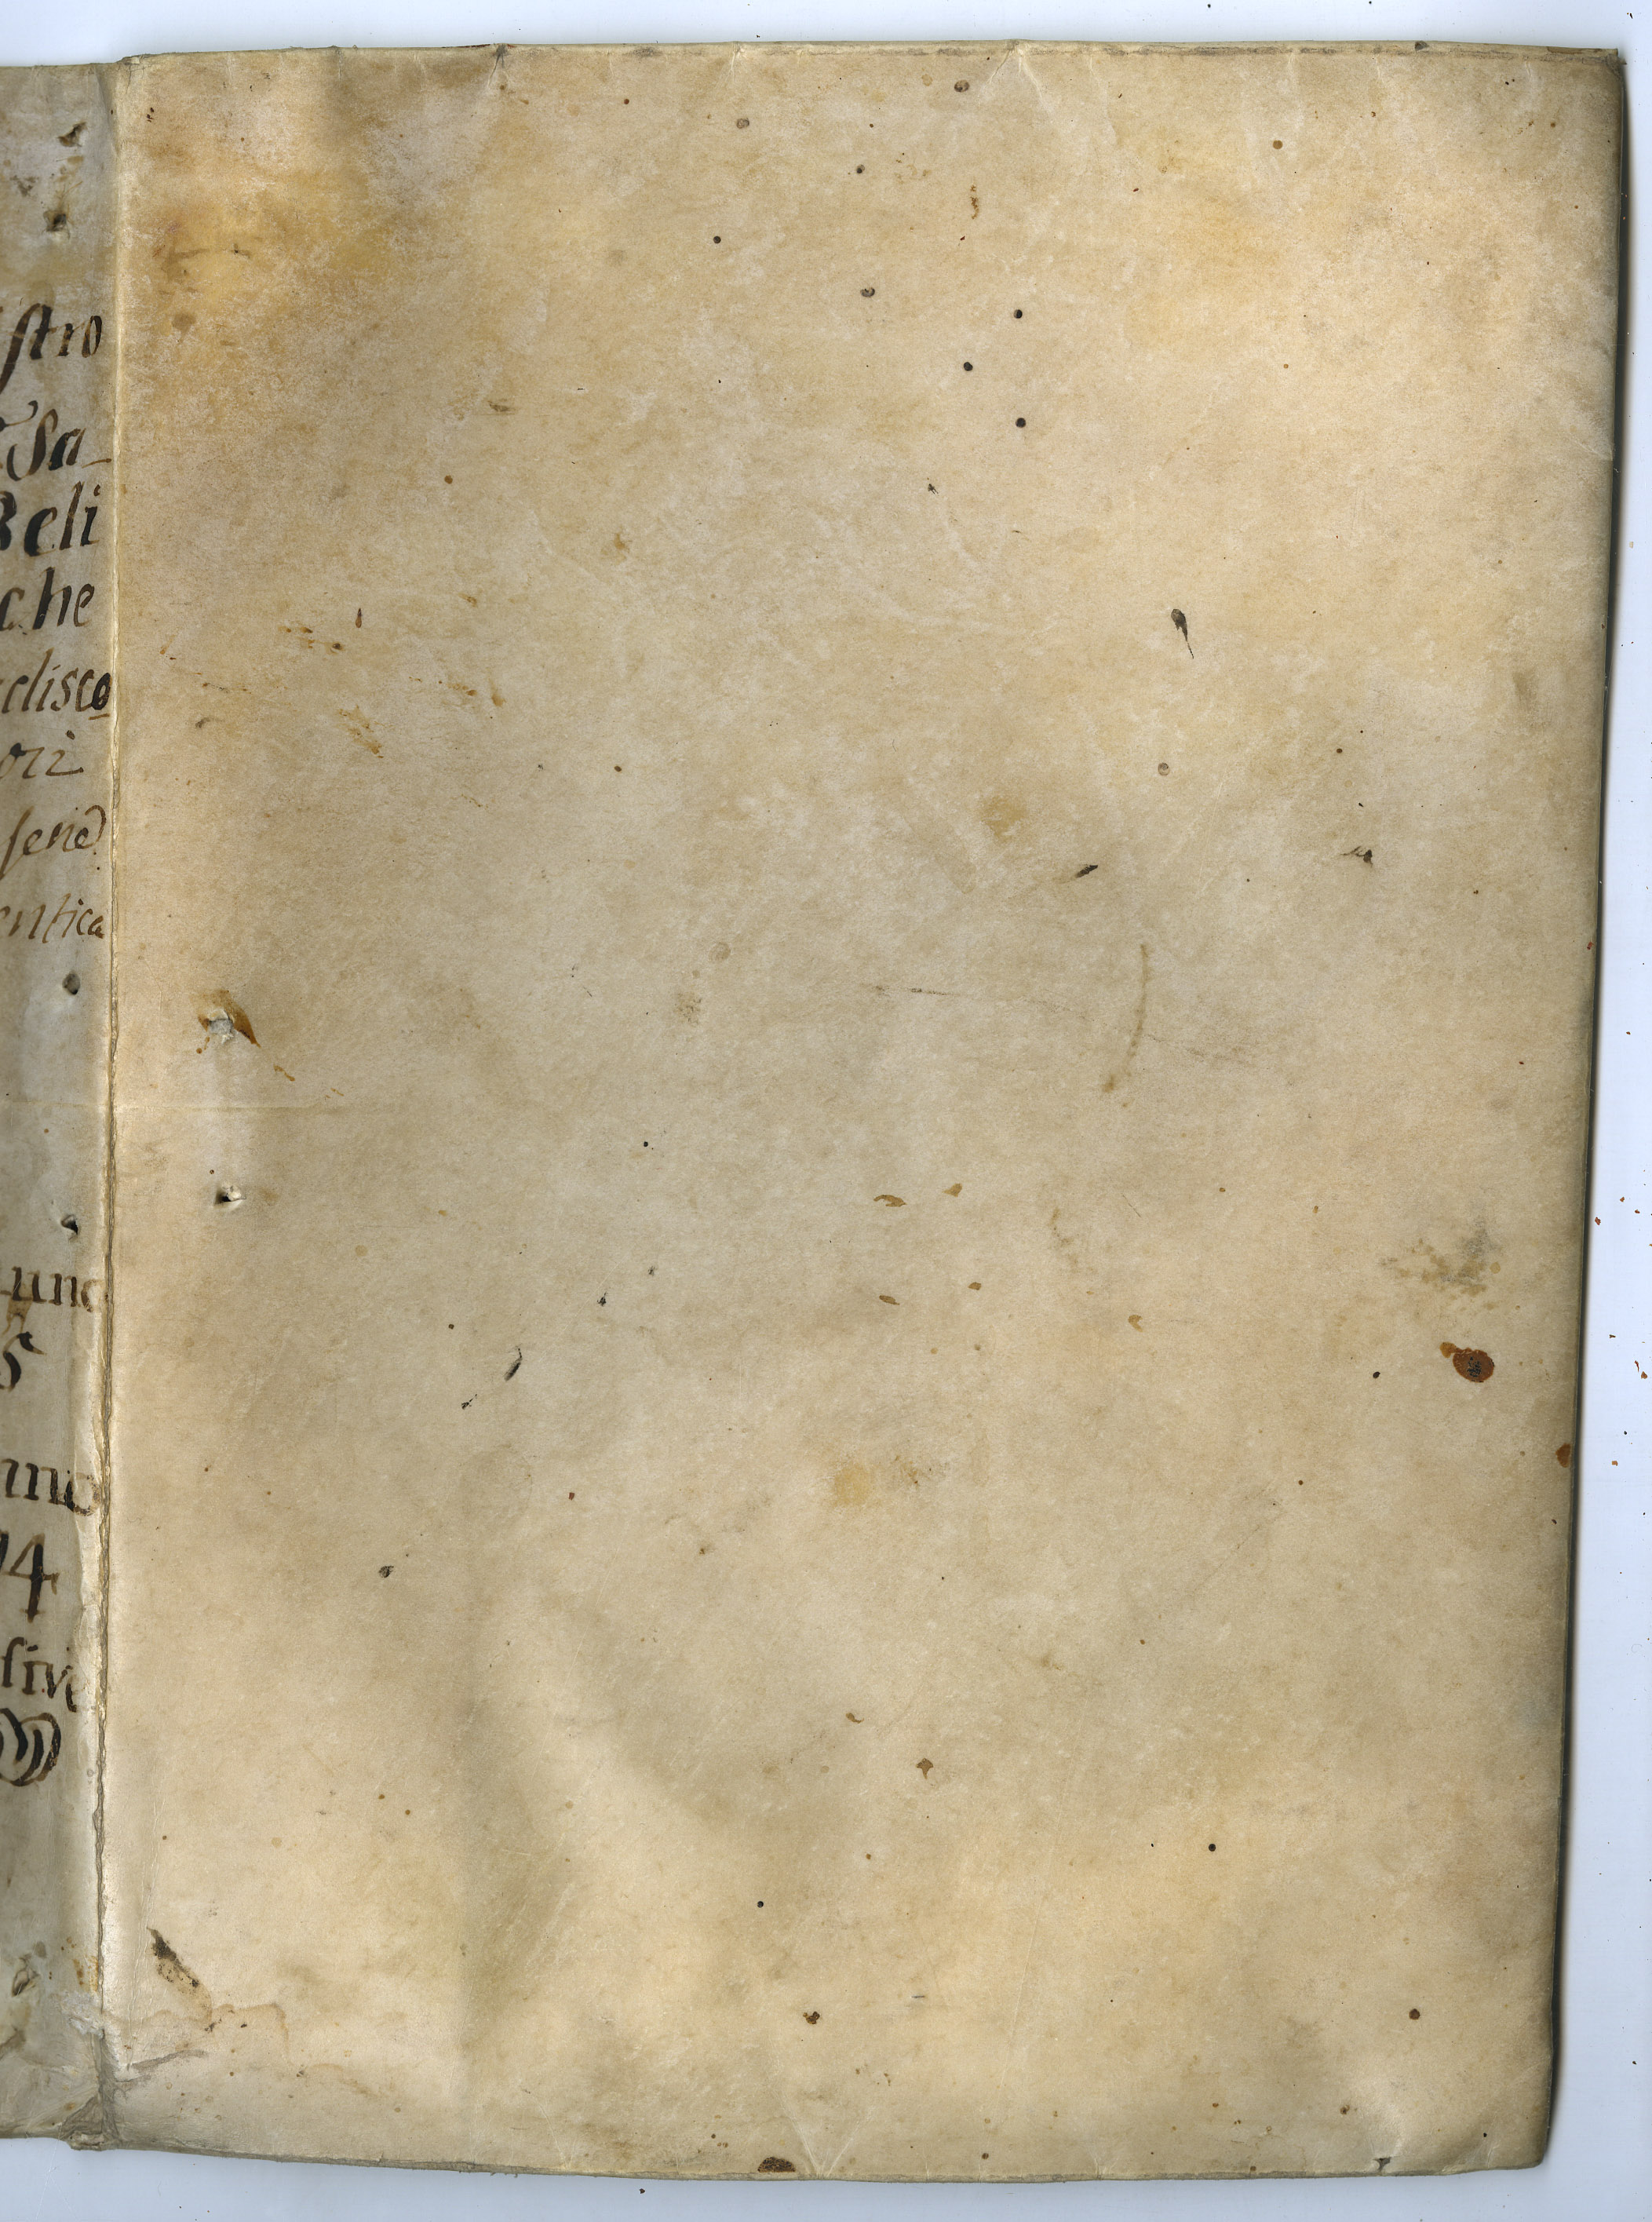 stro
Sa_
Beli
che
disco
ori
serie
entica
nno
5
nno
4
sive